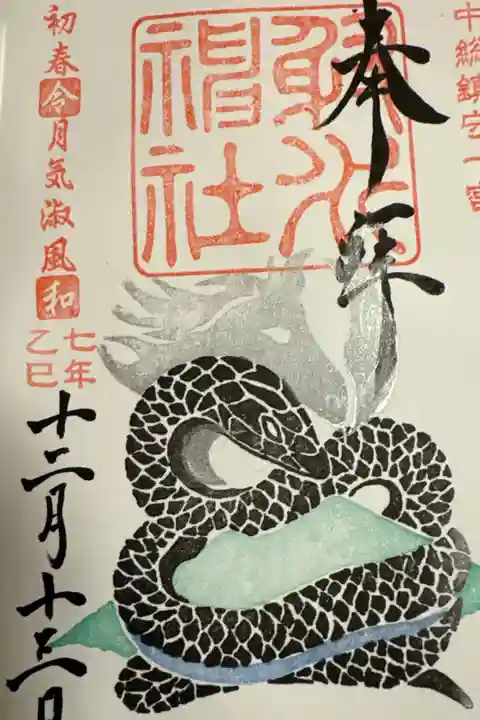 中総鎮守一宮
奉拝
射水
神社
初春令月気淑風和
七年
乙巳
十二月十三日